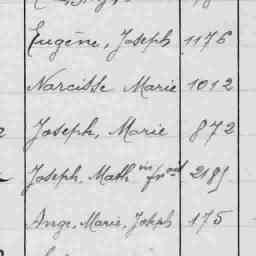 Eugène, Joseph 1176
Narcisse Marie 1012
Joseph, Marie 872
Joseph, Math. 218
Ange, Marie, Joseph 175